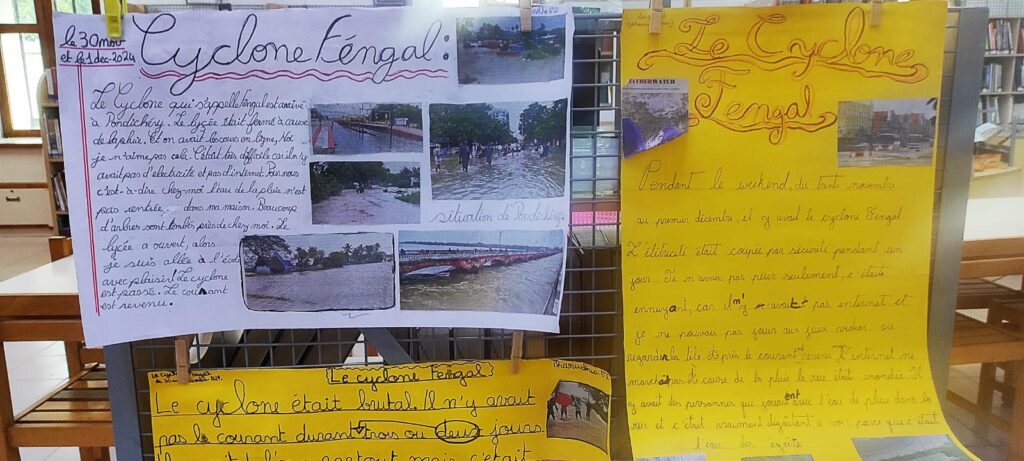 le 30 nov
et le 1 dec-2024
Cyclone Féngal:
Le Cyclone qui s'appelle Fengal est arrivé
à Pondichéry. Le lycée était fermé à cause
de la pluie. Et on avait les cours en ligne, Moi
je n'aime pas celà. C'était très difficile car il n'y
avait pas d'electricité et pas d'internet. Pour nous
c'est-à-dire chez-moi l'eau de la pluie n'est
pas rentrée dans ma maison. Beaucoup
d'arbres sont tombés près de chez moi. Le
lycée a ouvert, alors
je suis allée à l'école
avec plaisir! Le cyclone
est passé. Le courant
est revenu.
situation de Pondichéry
Le Cyclone Fengal
WEATHERWATCH
Pendant le weekend, du trente novembre
au premier décembre, il y avait le cyclone Fengal
L'életricité était coupée par sécurité pendant un
jour. Je n'avais pas peur seulement, c'était
ennuyant, car il n'y avait pas internet et
je ne pouvais pas jouer aux jeux vidéos ou
regarder la télé et après le courant est revenu internet ne
marchait pas. À cause de la pluie la rue était inondée Il
y avait des personnes que jouaient avec l'eau de pluie dans la
rue et c'était vraiment dégoûtant à voir parce que c'était
l'eau des égouts
Le cyclone Fengal
Le cyclone était brutal. Il n'y avait
pas le courant durant trois ou deux jours.